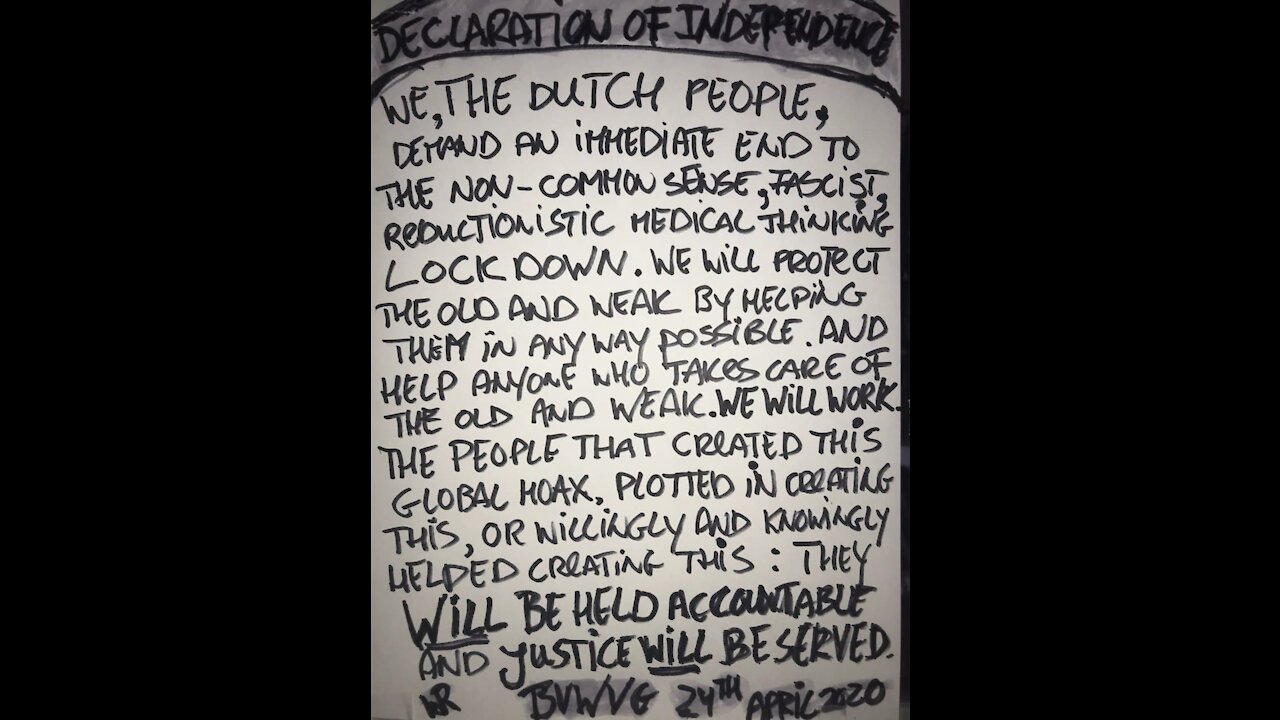 DECLARATION OF INDEPENDENCE
WE, THE DUTCH PEOPLE,
DEMAND AN IMMEDIATE END TO
THE NON-COMMON SENSE, FASCIST,
REDUCTIONISTIC MEDICAL THINKING
LOCKDOWN. WE WILL PROTECT
THE OLD AND WEAK BY HELPING
THEM IN ANY WAY POSSIBLE. AND
HELP ANYONE WHO TAKES CARE OF
THE OLD AND WEAK. WE WILL WORK.
THE PEOPLE THAT CREATED THIS
GLOBAL HOAX, PLOTTED IN CREATING
THIS, OR WILLINGLY AND KNOWINGLY
HELPED CREATING THIS: THEY
WILL BE HELD ACCOUNTABLE
AND JUSTICE WILL BE SERVED.
WR BVWVG 24TH APRIL 2020